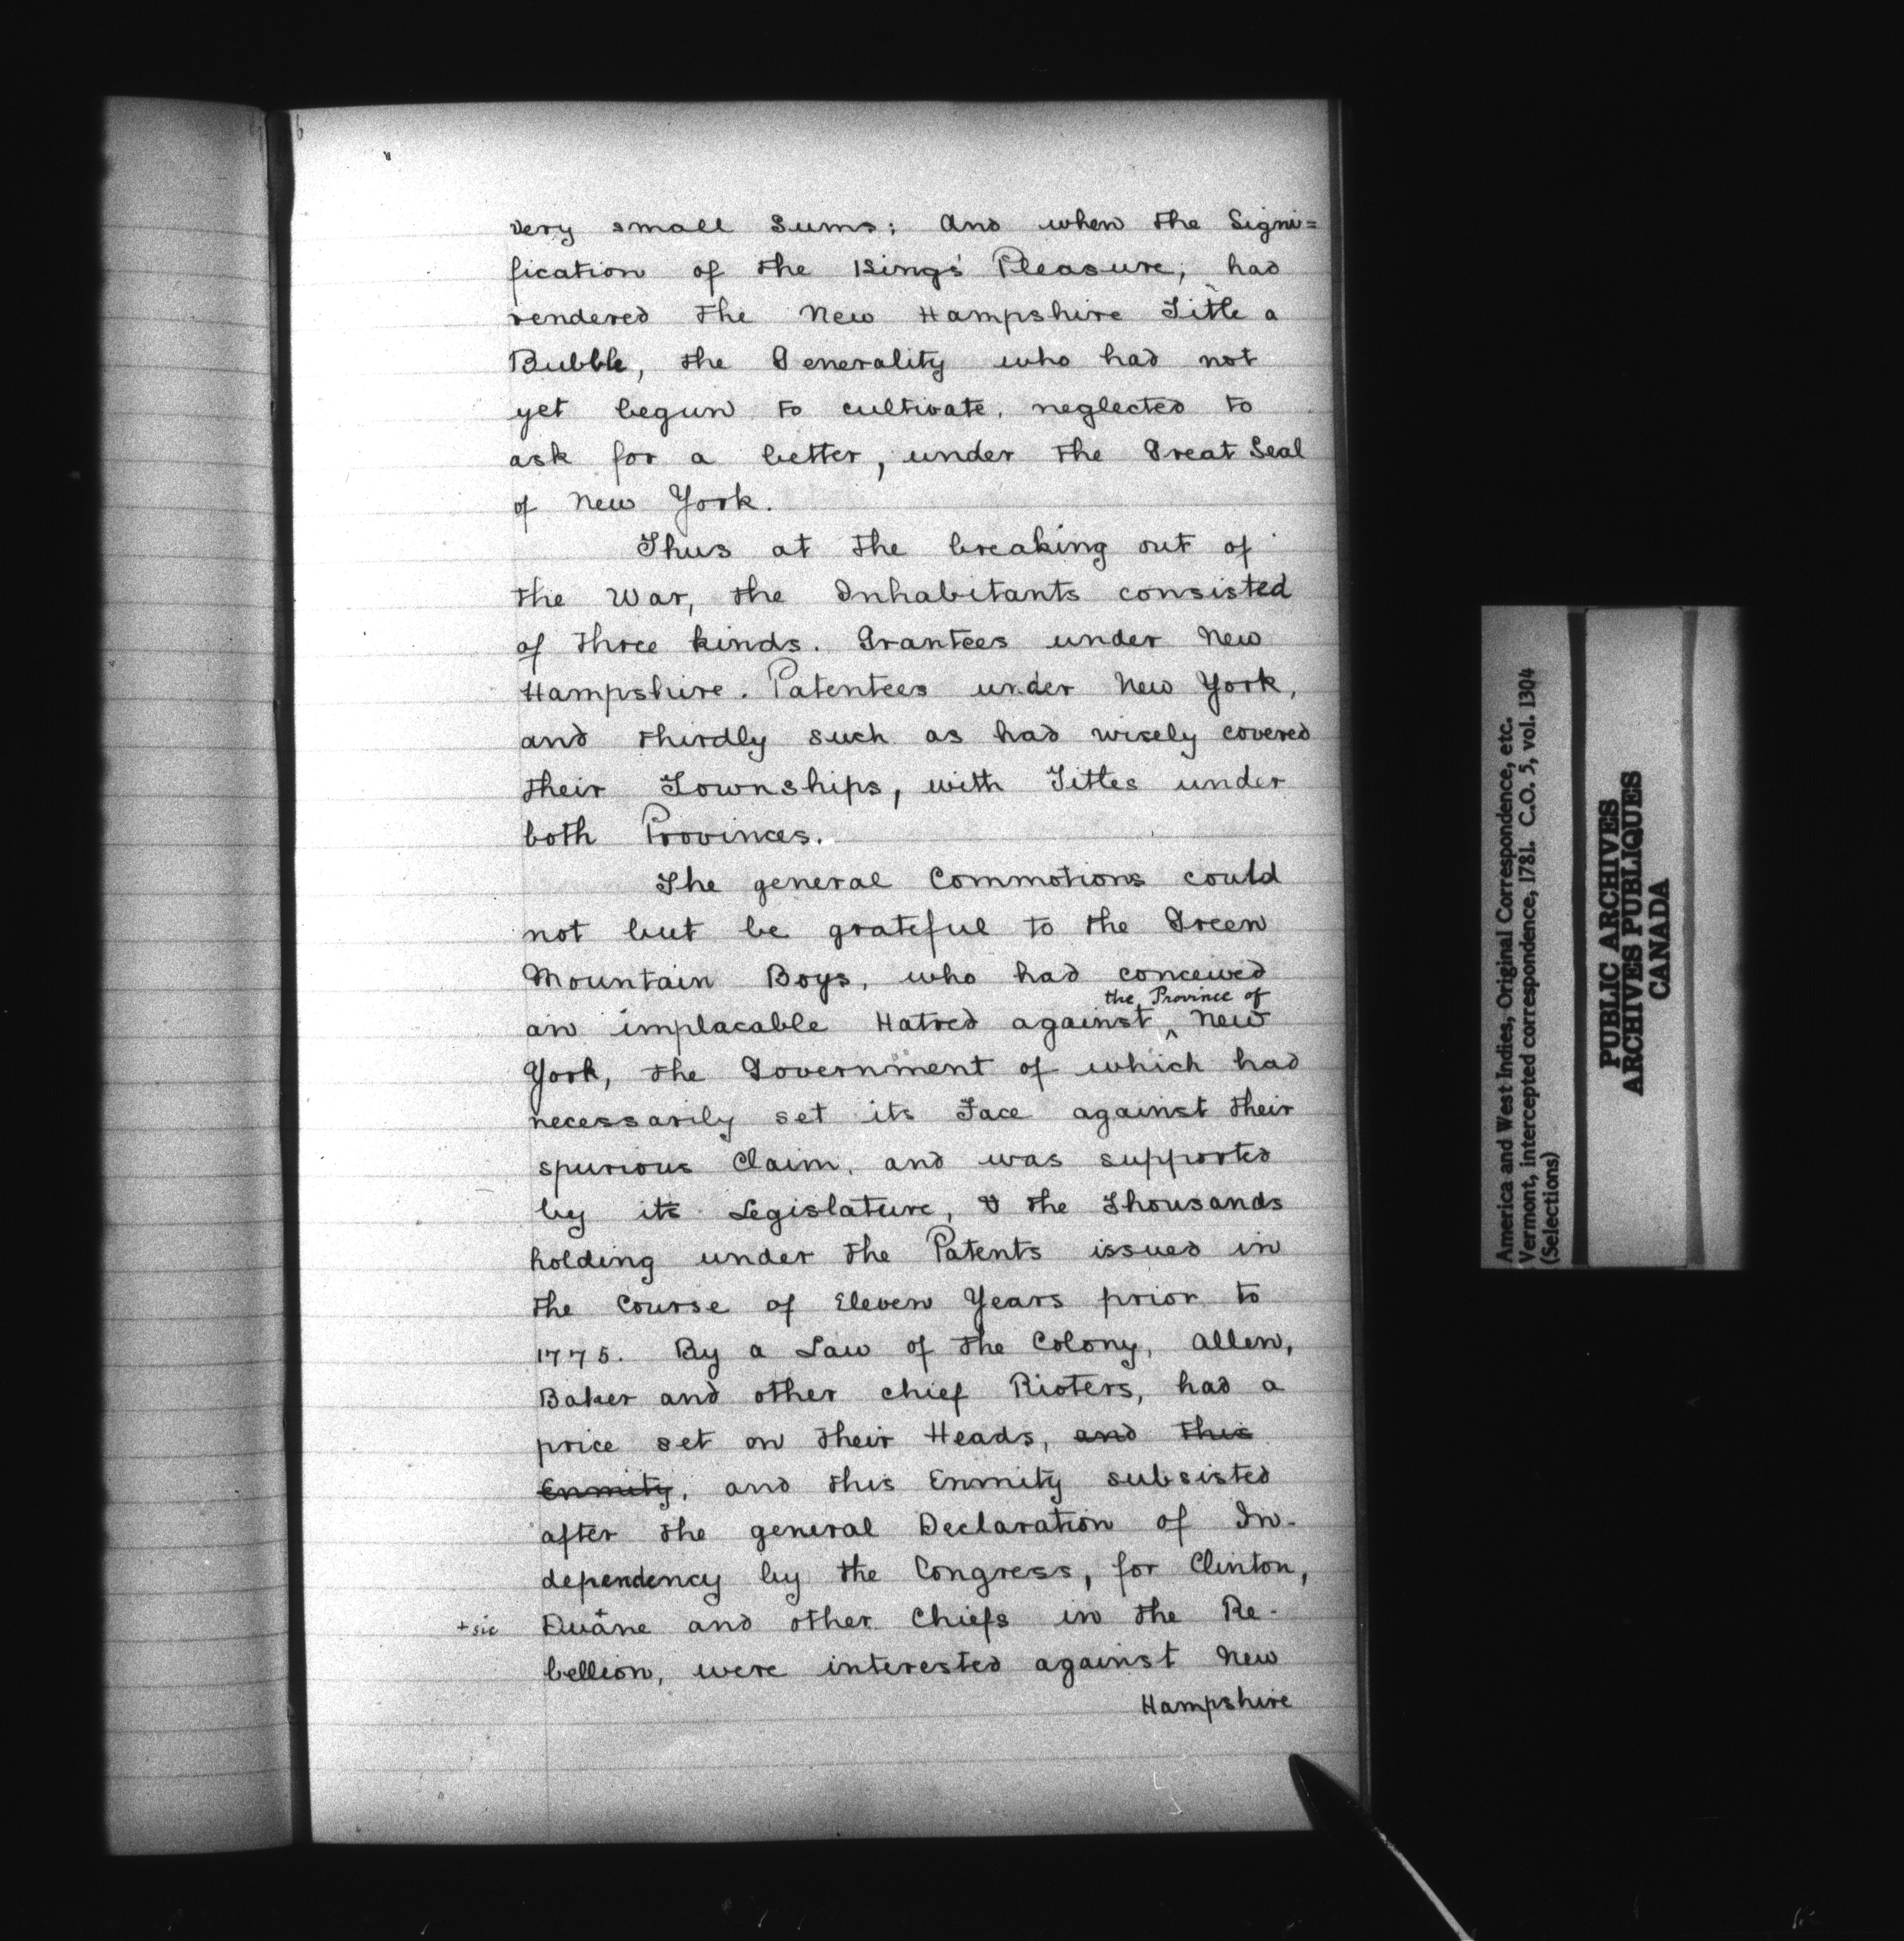 very small Sums; And when the Signi=
fication of the King's Pleasure, had
rendered the New Hampshire Title a
Bubble, the Generality who had not
yet begun to cultivate, neglected to
ask for a better, under the Great Seal
of New York.
Thus at the breaking out of
the War, the Inhabitants consisted
of three kinds. Grantees under New
Hampshire. Patentees under New York,
and thirdly such as had wisely covered
their Townships, with Titles under
both Provinces.
The general Commotions could
not but be grateful to the Green
Mountain Boys, who had conceived
the Province of
an implacable Hatred against ^ New
York, the Government of which had
necessarily set its Face against their
spurious Claim, and was supported
by its Legislature, & the Thousands
holding under the Patents issued in
the Course of Eleven Years prior to
1775. By a Law of the Colony, Allen,
Baker and other chief Rioters, had a
price set on their Heads, and this
Enmity, and this Enmity subsisted
after the general Declaration of In-
dependency by the Congress, for Clinton,
+ sic Duane and other Chiefs in the Re-
bellion, were interested against New
Hampshire
America and West Indies, Original Correspondence, etc.
Vermont, intercepted correspondence, 1781. C.O. 5, vol. 1304
(Selections)
PUBLIC ARCHIVES
ARCHIVES PUBLIQUES
CANADA